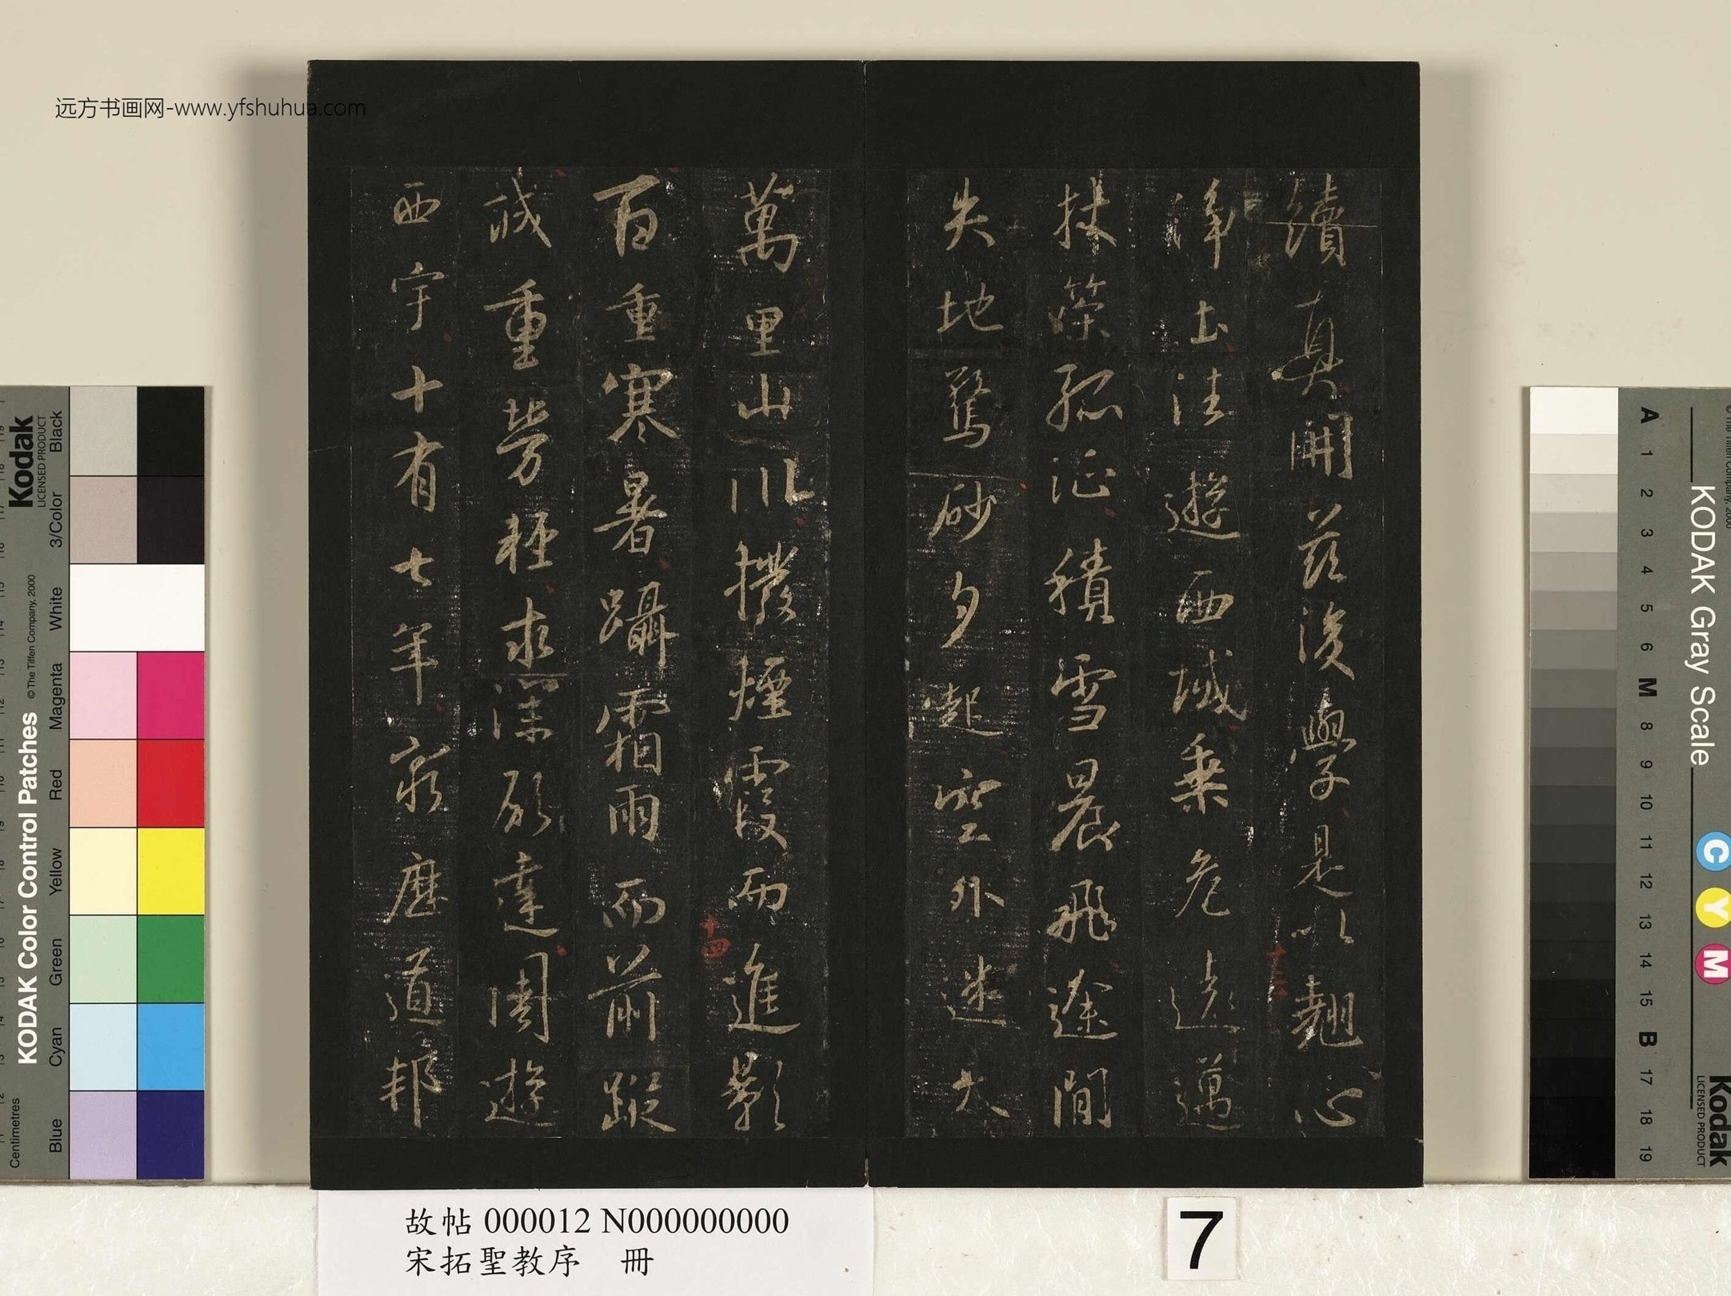 远方书画网-www.yfshuhua.com
續真開茲後學是以翹心
淨土法遊西域乘危遠邁
杖策孤征積雪晨飛途間
失地驚砂夕起空外迷天
萬里山川撥煙霞而進影
百重寒暑躡霜雨而前蹤
誠重勞輕求深願達周遊
西宇十有七年窮歷道邦
十三
十四
故帖 000012 N000000000
宋拓聖教序 冊
7
Kodak
LICENSED PRODUCT
KODAK Color Control Patches
© The Tiffen Company, 2000
Centimetres
Black
3/Color
White
Magenta
Red
Yellow
Green
Cyan
Blue
KODAK Gray Scale
A 1 2 3 4 5 6 M 8 9 10 11 12 13 14 15 B 17 18 19
C
Y
M
Kodak
LICENSED PRODUCT